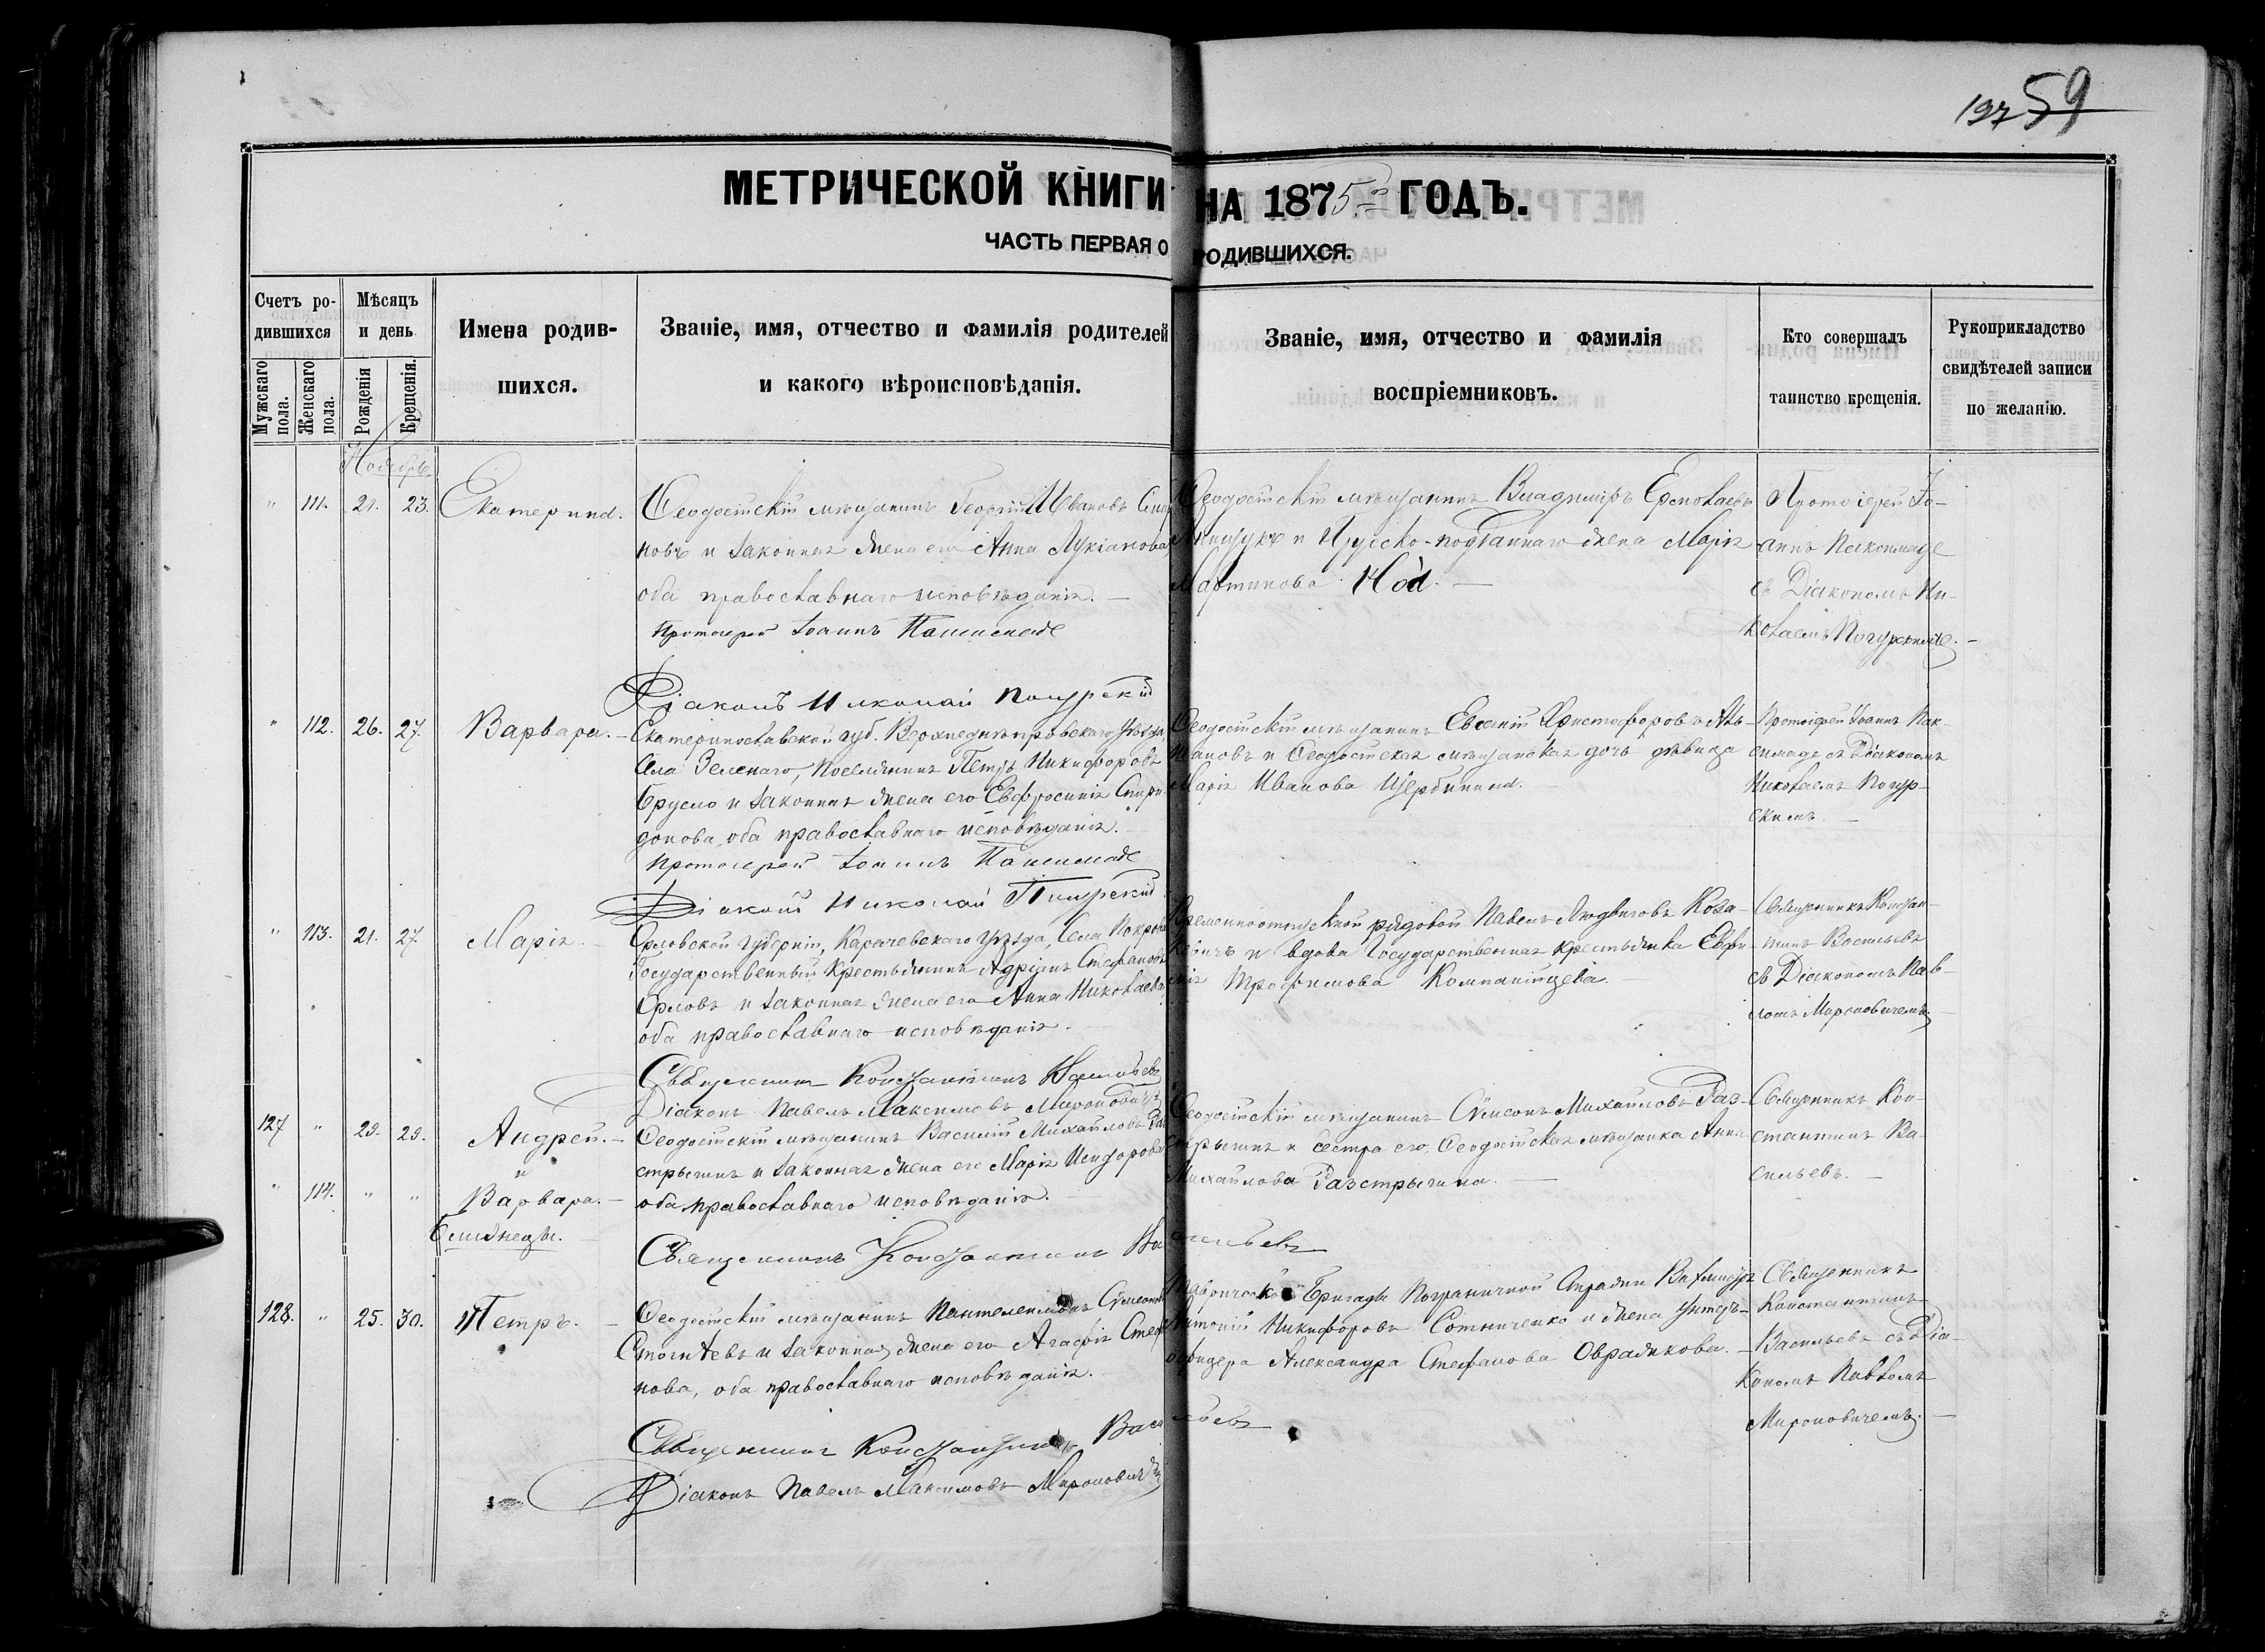 197 59
МЕТРИЧЕСКОЙ КНИГИ НА 1875й ГОДЪ.
ЧАСТЬ ПЕРВАЯ О РОДИВШИХСЯ.
Счетъ ро-
дившихся
Мужскаго пола.
Женскаго пола.
Мѣсяцъ
и день
Рожденія
Крещенія.
Имена родив-
шихся.
Званіе, имя, отчество и фамилія родителей
и какого вѣроисповѣданія.
Званіе, имя, отчество и фамилія
воспріемниковъ.
Кто совершалъ
таинство крещенія.
Рукоприкладство
свидѣтелей записи
по желанію.
Ноябрь
" 111. 21. 23. Екатерина.
Ѳеодосійскій мѣщанинъ Георгій Ивановъ
новъ и законная жена его Анна Лукіанова
оба православнаго исповѣданія. —
Протоіерей Іоаннъ
Діаконъ Николай
Ѳеодосійскій мѣщанинъ Владиміръ
и Прусско-подданнаго жена Марія
Мартинова
Протоіерей Іо-
аннъ
съ Діакономъ Ни-
колаемъ
" 112. 26. 27. Варвара. —
Екатеринославской губ. Верхнеднѣпровскаго уѣзда,
села Зеленаго, поселянинъ Петръ Никифоровъ
Брусло и законная жена его Евфросинія Спири-
донова, оба православнаго исповѣданія. —
Протоіерей Іоаннъ
Діаконъ Николай
Ѳеодосійскій мѣщанинъ Евгеній Христофоровъ
и Ѳеодосійская мѣщанская дочь дѣвица
Марія Иванова Щербинина. —
Протоіерей Іоаннъ
съ Діакономъ
Николаемъ
скимъ. —
" 113. 21. 27. Марія. —
Орловской губерніи, Карачевскаго уѣзда, села
Государственный крестьянинъ Адріанъ Стефановъ
Орловъ и законная жена его Анна Николаева,
оба православнаго исповѣданія. —
Священникъ Константинъ Васильевъ
Діаконъ Павелъ Максимовъ Мироновичъ
Временноотпускной рядовой Павелъ Людвиговъ
и вдова Государственная крестьянка
Трофимова Компанійцева. —
Священникъ Констан-
тинъ Васильевъ
съ Діакономъ Пав-
ломъ Мироновичемъ. —
127 " 29. 29. Андрей. —
и
" 114. " " Варвара. —
близнецы. —
Ѳеодосійскій мѣщанинъ Василій Михайловъ Раз-
стрыгинъ и законная жена его Марія Исидорова
оба православнаго исповѣданія. —
Священникъ Константинъ Васильевъ
Ѳеодосійскій мѣщанинъ Сѵмеонъ Михайловъ Раз-
стрыгинъ и сестра его, Ѳеодосійская мѣщанка Анна
Михайлова Разстрыгина. —
Священникъ Кон-
стантинъ Ва-
сильевъ. —
128. " 25. 30. Петръ. —
Ѳеодосійскій мѣщанинъ Пантелеимонъ Сѵмеоновъ
и законная жена его Агафія Стефа-
нова, оба православнаго исповѣданія. —
Священникъ Константинъ Васильевъ
Діаконъ Павелъ Максимовъ Мироновичъ
Таврической Бригады Пограничной Стражи Вахмистръ
Антоній Никифоровъ Сотниченко и жена унтеръ-
офицера Александра Стефанова Овражкова. —
Священникъ
Константинъ
Васильевъ съ Діа-
кономъ Павломъ
Мироновичемъ. —